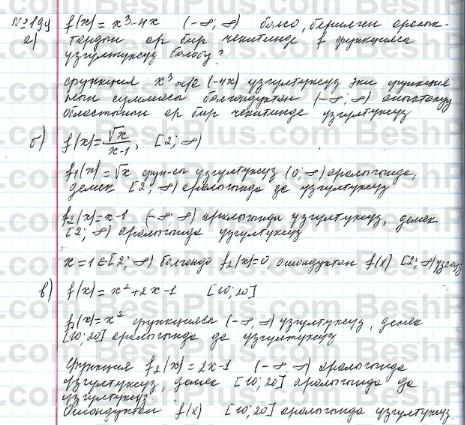 № 199
а) f(x) = x³-4x (-∞; ∞) болсо, берилген аралык-
тардын ар бир чекитинде f функциясы
үзгүлтүксүз болобу?
функция x³ үзгүлтүксүз эки функция
нын суммасы болгондуктан (-∞; ∞) аныкталуу
областынын ар бир чекитинде үзгүлтүксүз
б) f(x) = √x/x-1, [2; ∞)
f₁(x) = √x үзгүлтүксүз (0; ∞) аралыгында,
демек [2; ∞) аралыгында да үзгүлтүксүз
f₂(x) = x-1 (-∞; ∞) аралыгында үзгүлтүксүз, демек
[2; ∞) аралыгында үзгүлтүксүз
x=1∈[2; ∞) болгондо f₂(x)=0, ошондуктан f(x) [2; ∞) үзгүл
в) f(x) = x²+2x-1 [10; 20]
f₁(x) = x² функциясы (-∞; ∞) үзгүлтүксүз, демек
[10; 20] аралыгында да үзгүлтүксүз
Функция f₂(x) = 2x-1 (-∞; ∞) аралыгында
үзгүлтүксүз, демек [10; 20] аралыгында да
үзгүлтүксүз
Ошондуктан f(x) [10; 20] аралыгында үзгүлтүксүз.